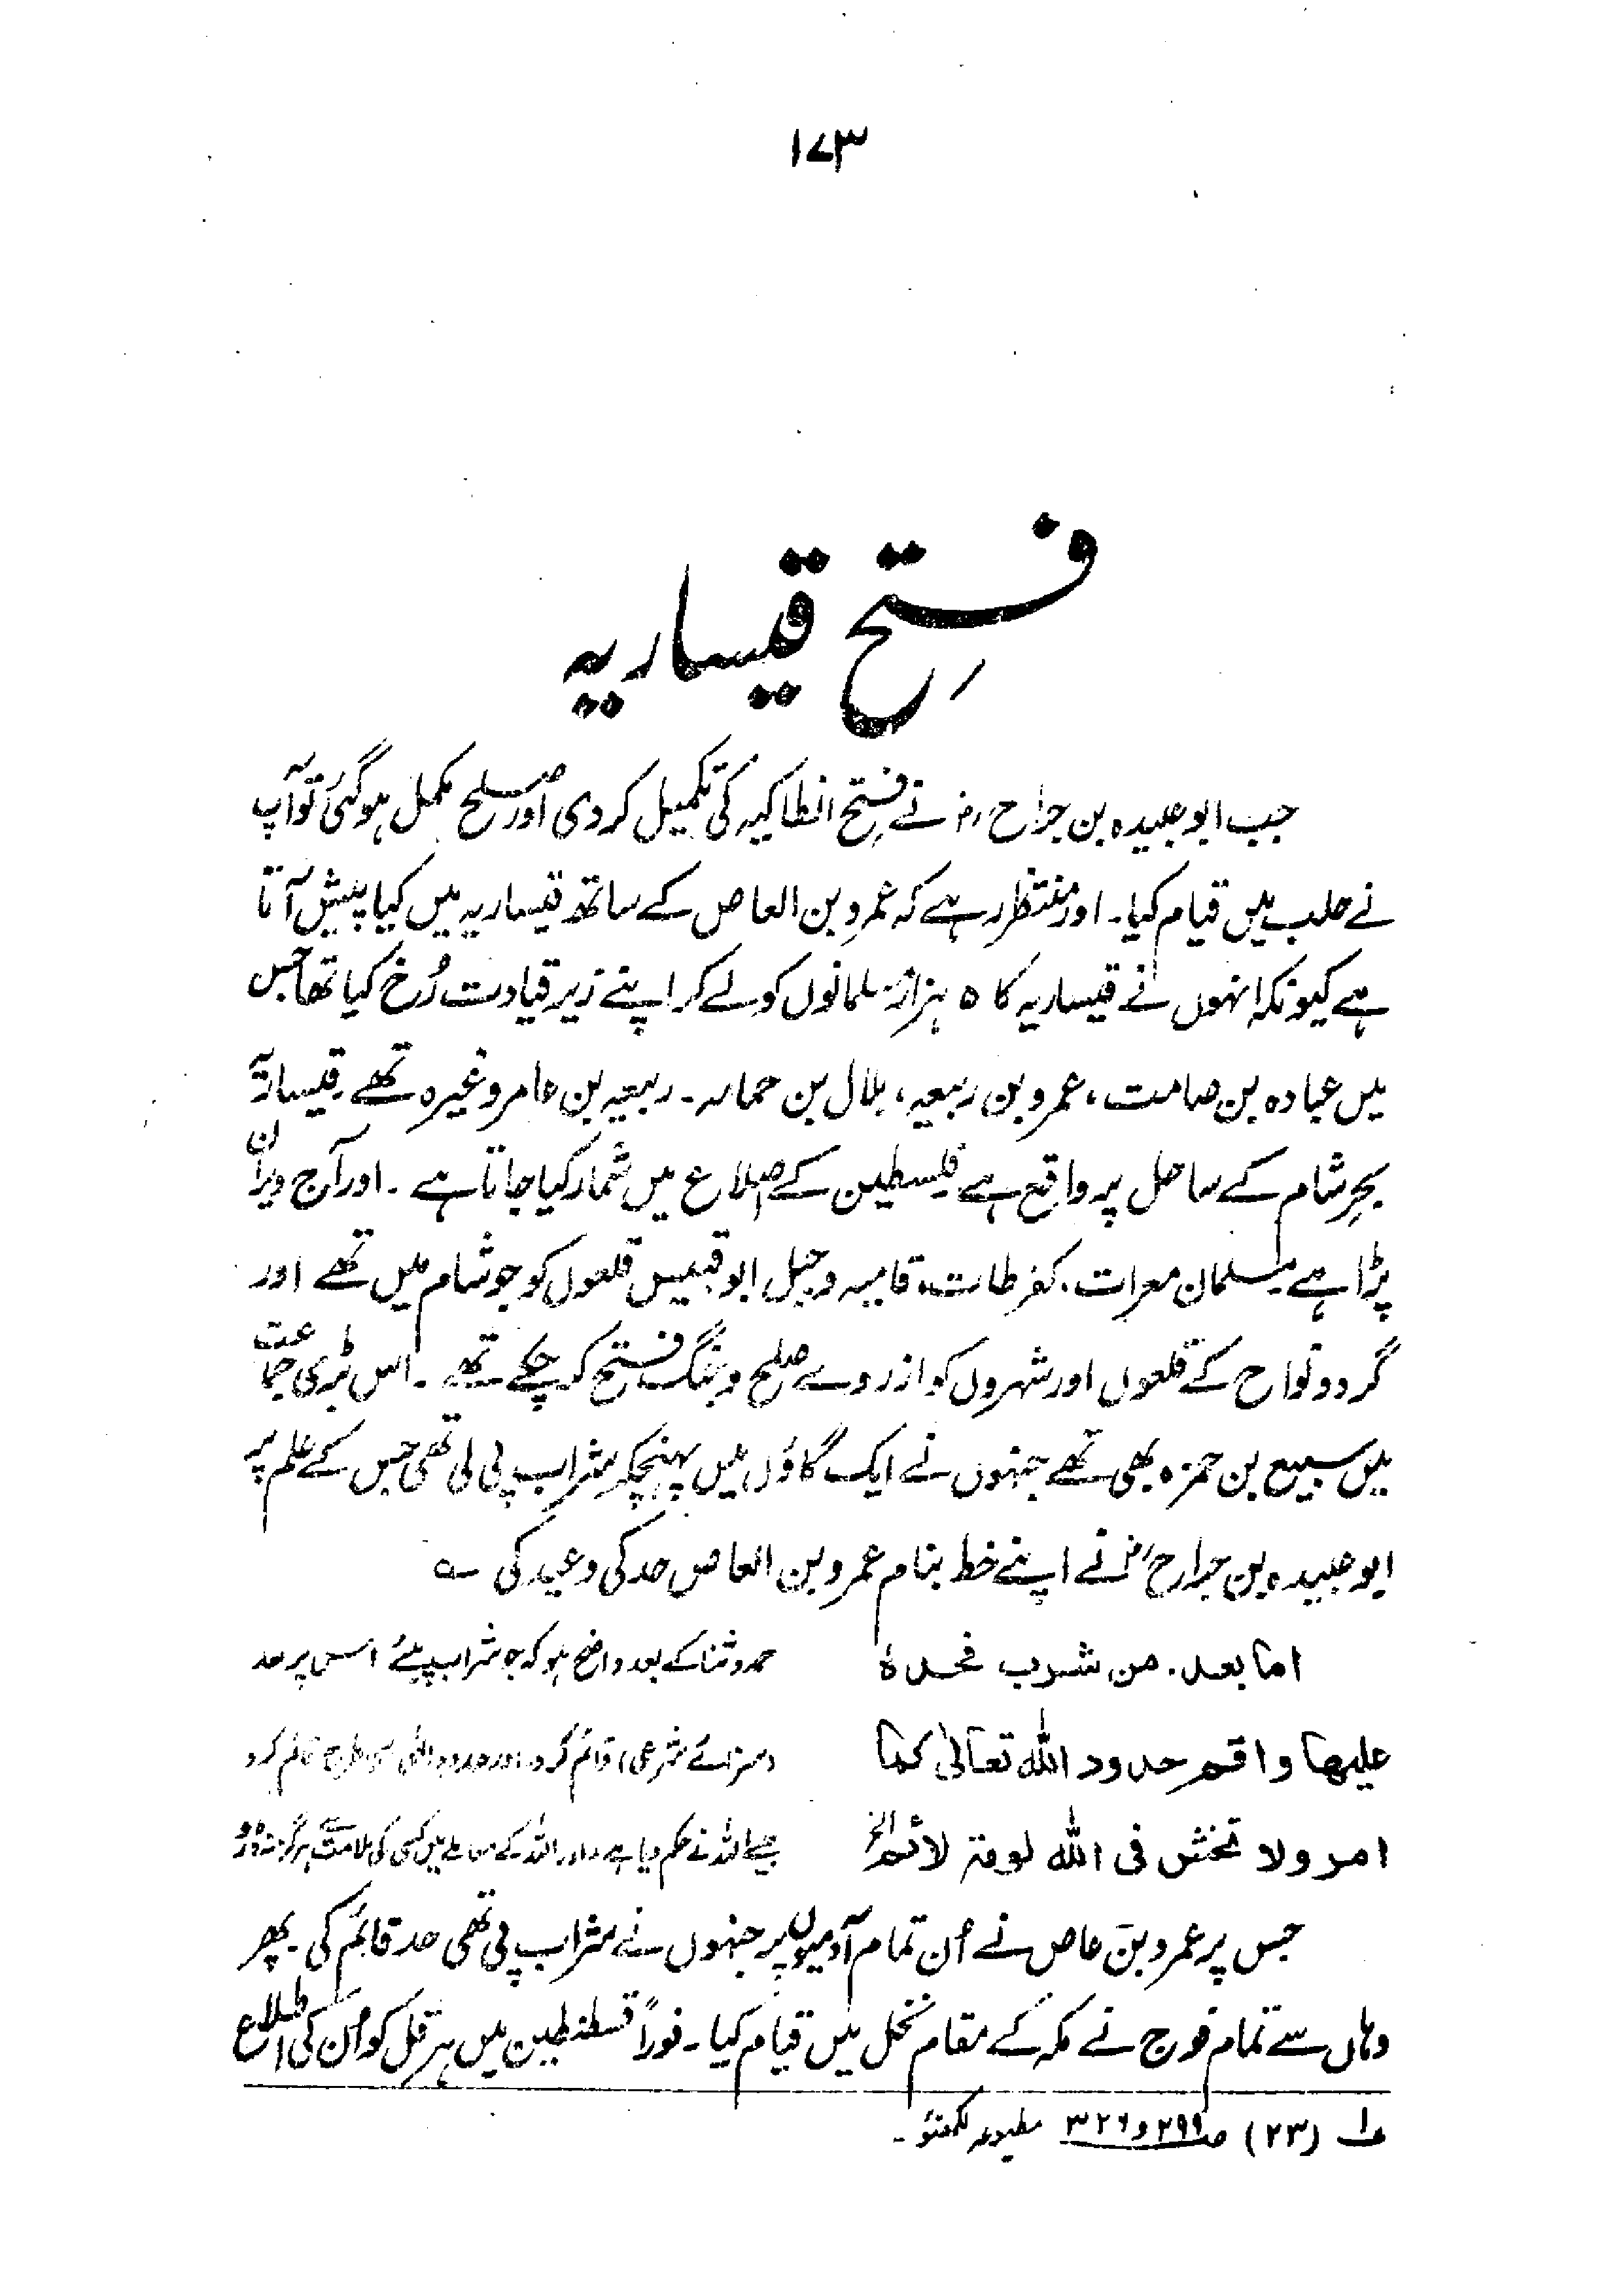 ۱۷۳
فتحِ قیساریہ
جب ابو عبیدہ بن جراح رض نے فتحِ انطاکیہ کی تکمیل کر دی اور صلح مکمل ہو گئی تو آپ
نے حلب میں قیام کیا۔ اور منتظر رہے کہ عمرو بن العاص کے ساتھ قیساریہ میں کیا پیش آتا
ہے کیونکہ انہوں نے قیساریہ کا ۵ ہزار مسلمانوں کو لے کر اپنے زیر قیادت رُخ کیا تھا جس
میں عبادہ بن صامت، عمرو بن ربیعہ، بلال بن حمامہ۔ ربیعہ بن عامر وغیرہ تھے۔ قیساریہ
بحرِ شام کے ساحل پر واقع ہے فلسطین کے اضلاع میں شمار کیا جاتا ہے۔ اور آج ویران
پڑا ہے۔ مسلمان معرات، کفرطات، قامیہ و جبل ابوقبیس قلعوں کو جو شام میں تھے اور
گرد و نواح کے قلعوں اور شہروں کو از روے صلح و جنگ فتح کر چکے تھے۔ اس بڑی جماعت
میں سبیع بن حمزہ بھی تھے جنہوں نے ایک گاؤں میں پہنچکر شراب پی لی تھی جس کے علم پر
ابو عبیدہ بن جراح رض نے اپنے خط بنام عمرو بن العاص حد کی وعید کی ؎
اما بعد۔ من شرب فحدہ
علیھا واقم حدود اللہ تعالیٰ کما
امر ولا تخش فی اللہ لومۃ لائم الخ
حمد و ثنا کے بعد واضح ہو کہ جو شراب پیئے اس پر حد
(سزائے شرعی) قائم کرو۔ اور حدود الٰہی اسی طرح قائم کرو
جیسے اللہ نے حکم دیا ہے۔ اور اللہ کے معاملے میں کسی کی ملامت سے ہرگز نہ ڈرو
جس پر عمرو بن عاص نے اُن تمام آدمیوں پر جنہوں نے شراب پی تھی حد قائم کی۔ پھر
وہاں سے تمام فوج نے مکہ کے مقام نخل میں قیام کیا۔ فوراً قسطنطین میں ہرقل کو اُن کی اطلاع
؎۱ (۲۳) صـ ۲۹۹ و ۳۲۶ مطبوعہ لکھنؤ۔